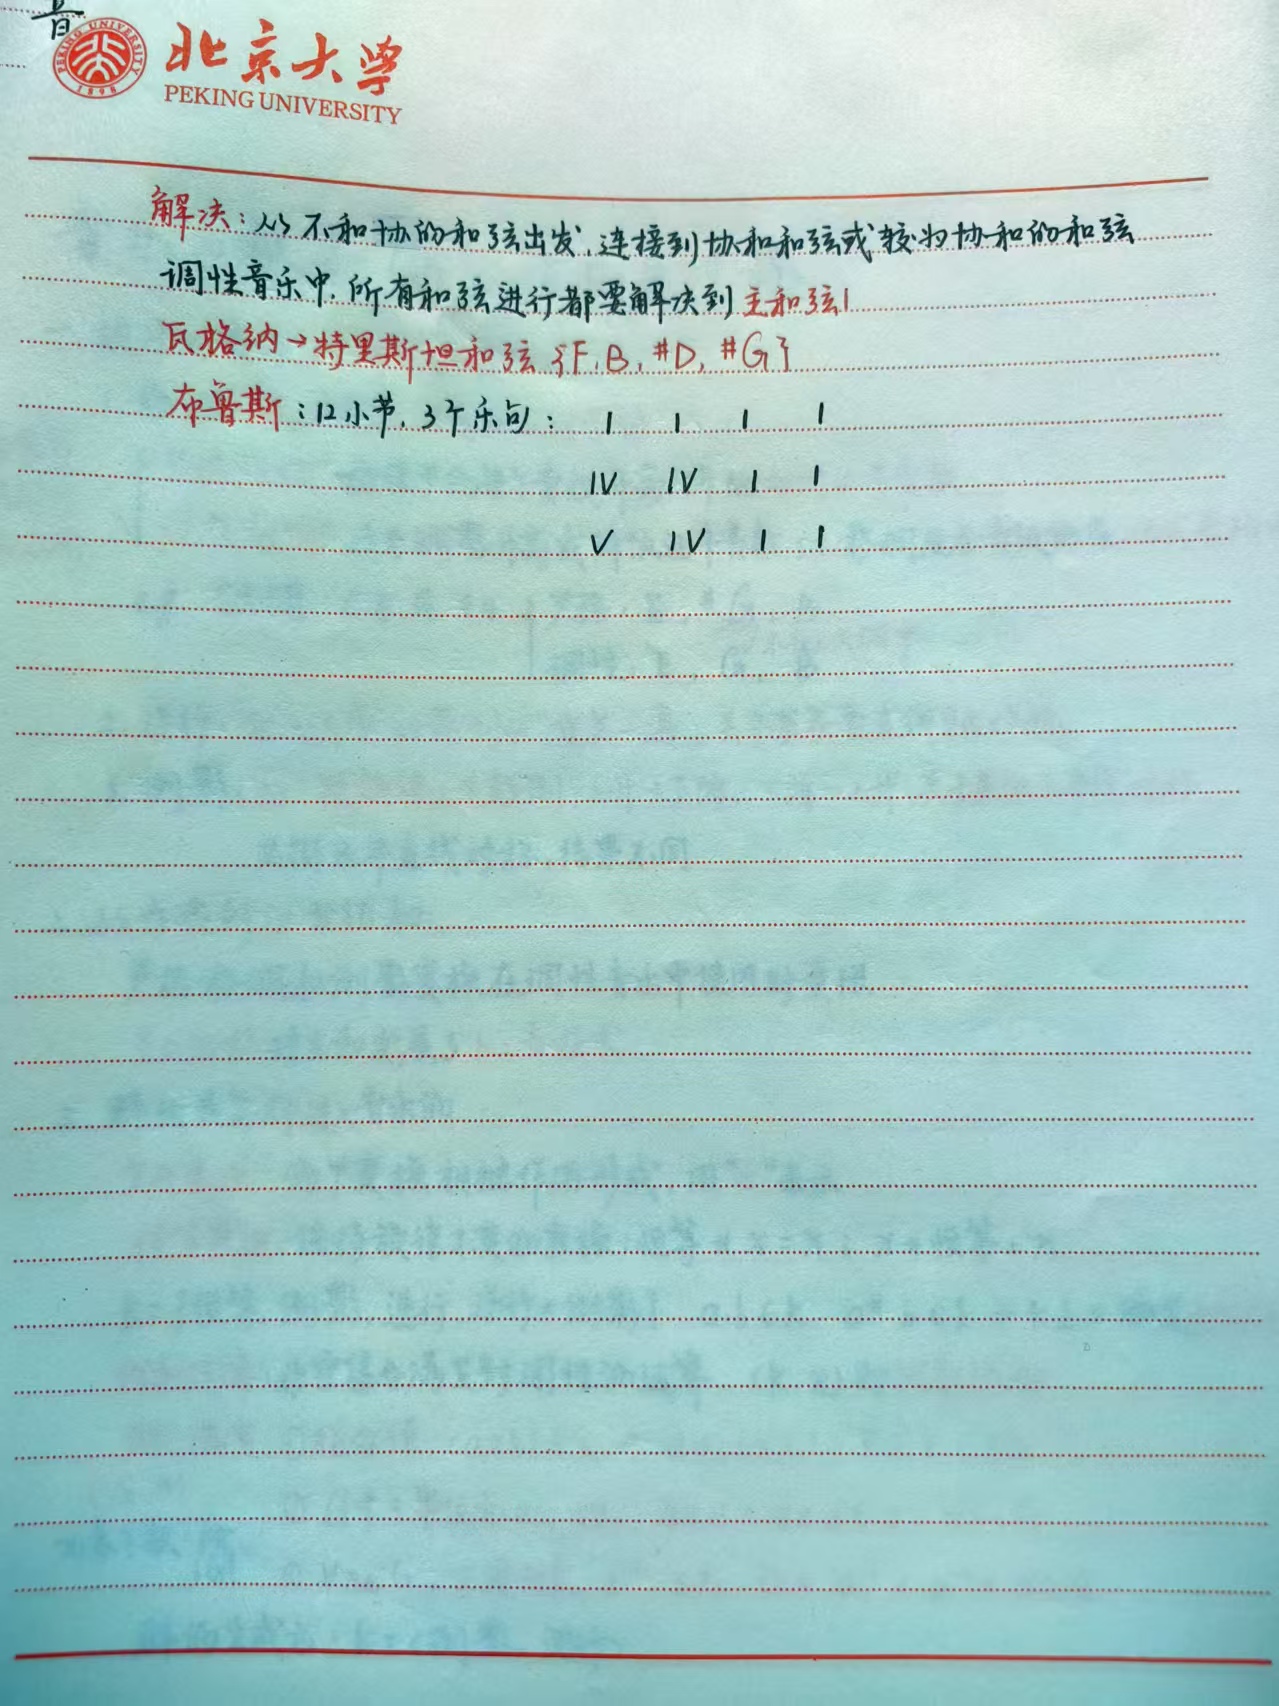 音
北京大学
PEKING UNIVERSITY
PEKING UNIVERSITY
1898
解决：从不和协的和弦出发，连接到协和和弦或较为协和的和弦
调性音乐中，所有和弦进行都要解决到主和弦I
瓦格纳→特里斯坦和弦 {F, B, #D, #G}
布鲁斯：12小节，3个乐句： I I I I
IV IV I I
V IV I I